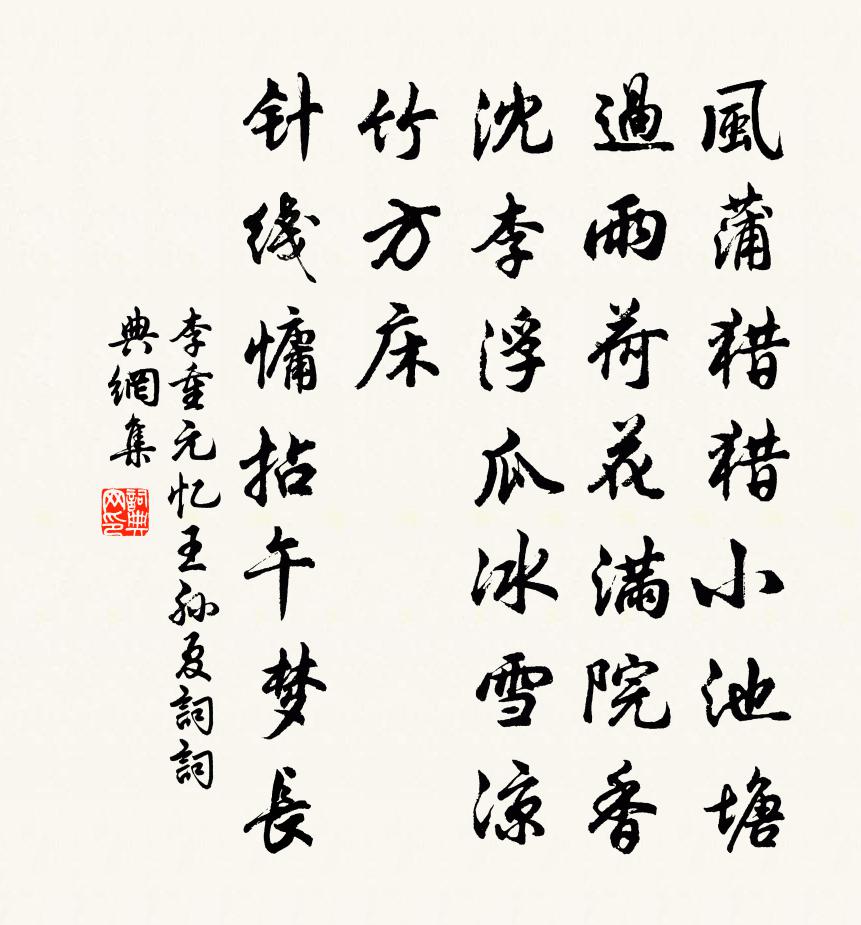 風蒲猎猎小池塘
過雨荷花满院香
沈李浮瓜冰雪凉
竹方床
针线慵拈午梦長
李重元忆王孙夏詞詞
典網集
詞典网印